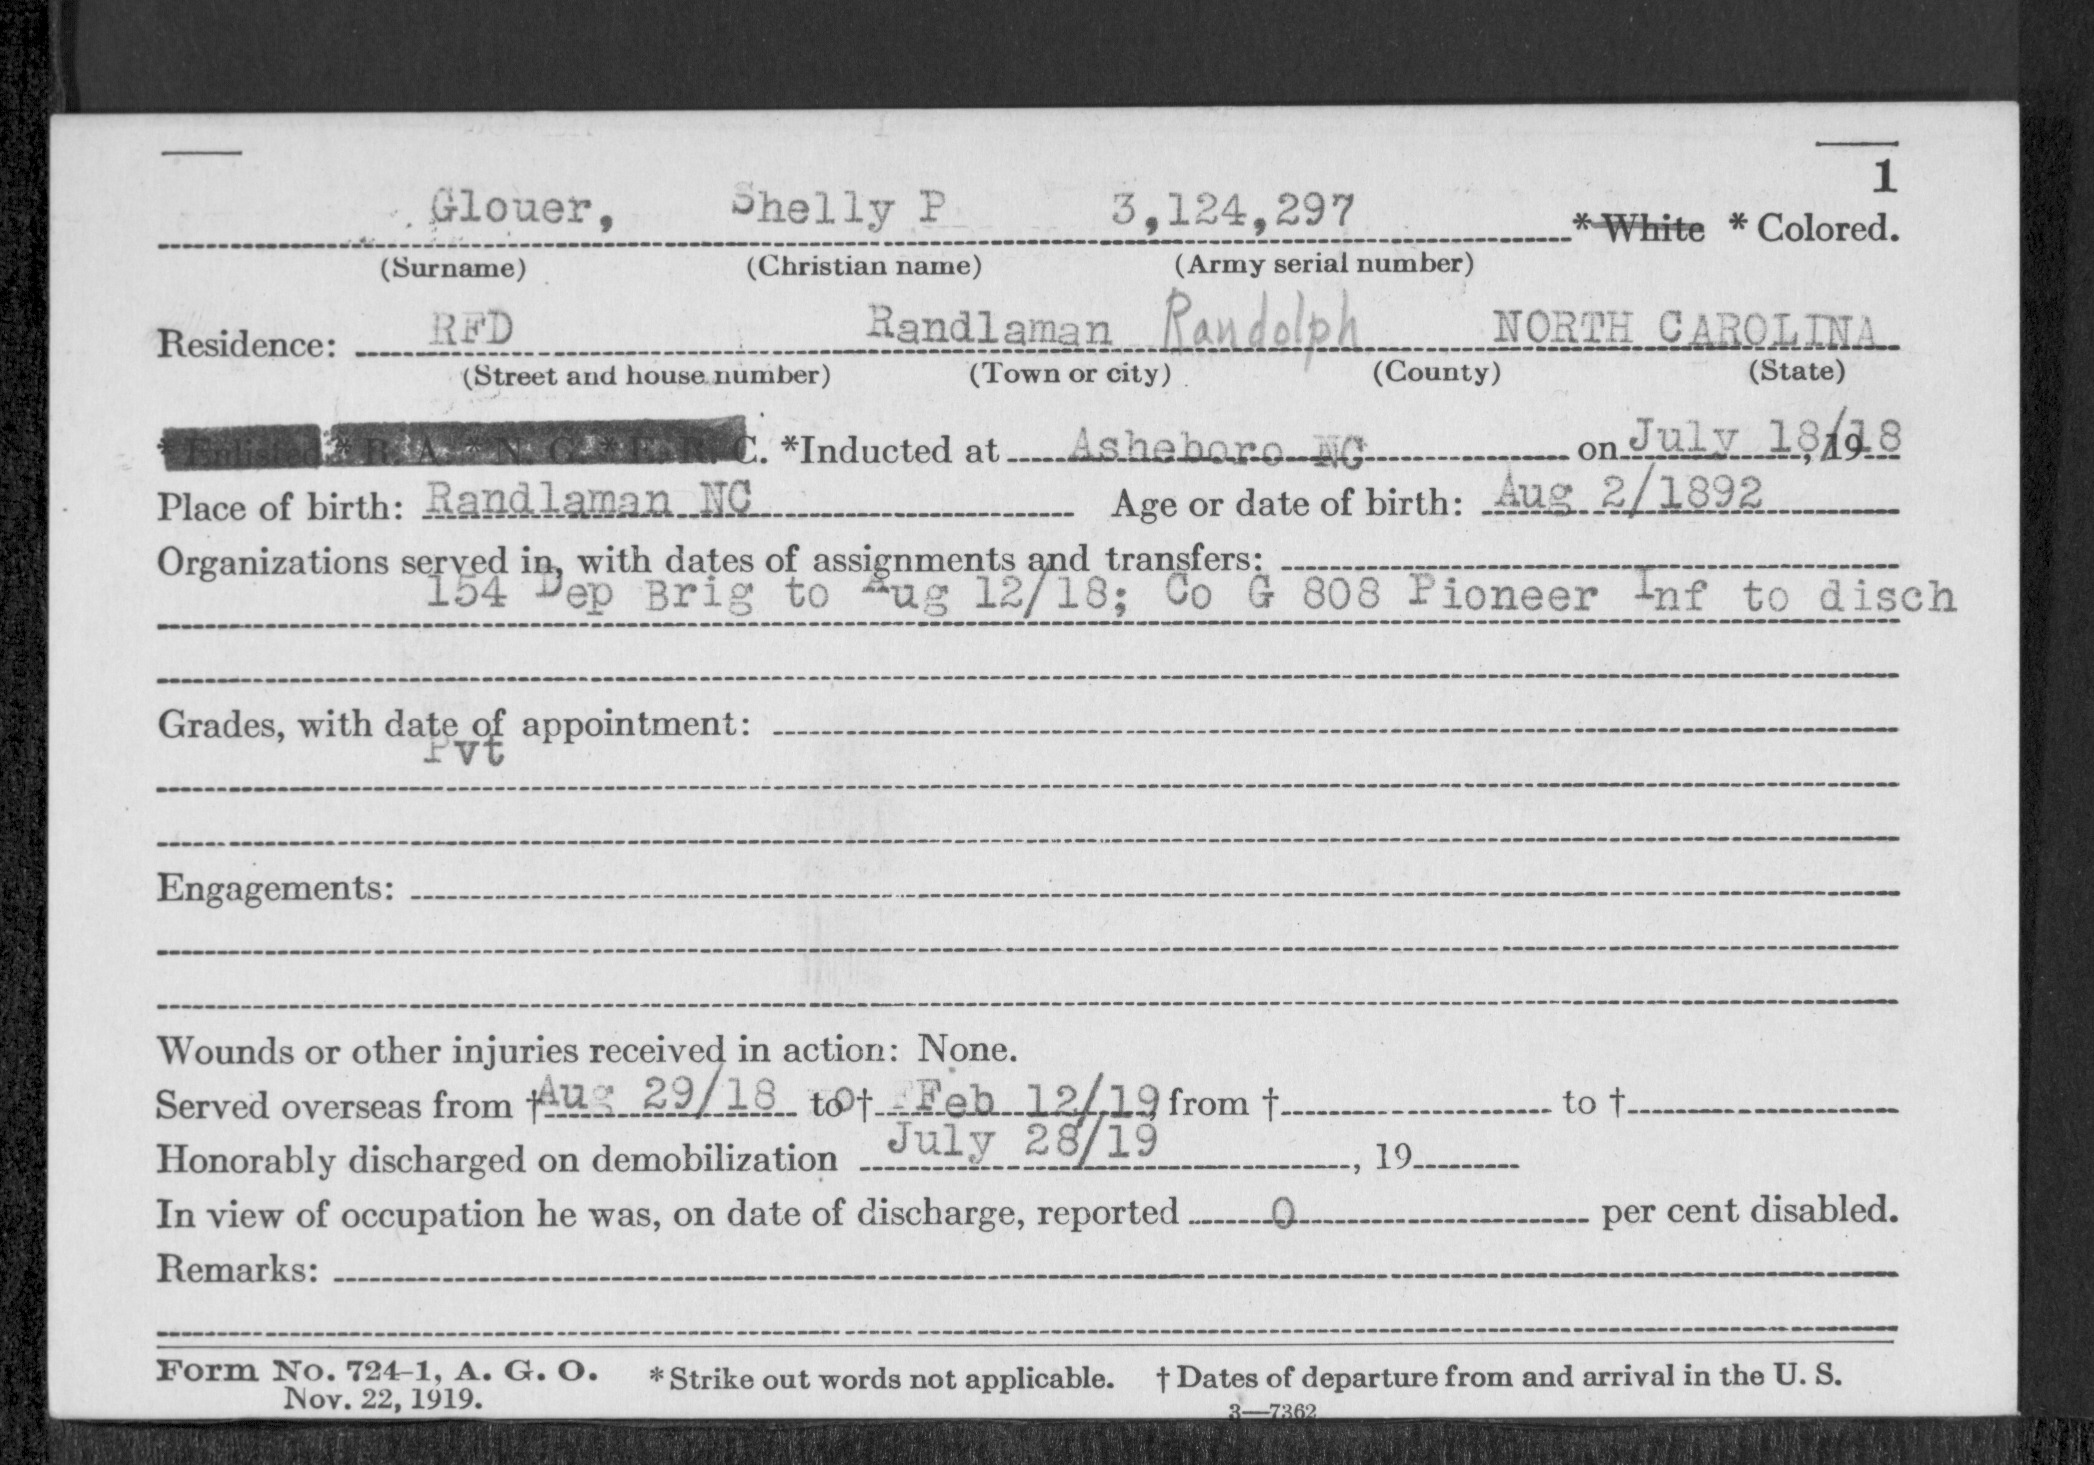 1
Glouer, Shelly P 3,124,297 *White *Colored.
(Surname) (Christian name) (Army serial number)
Residence: RFD Randlaman Randolph NORTH CAROLINA
(Street and house number) (Town or city) (County) (State)
*Enlisted *R. A. *N. G. *E. R. C. *Inducted at Asheboro NC on July 18/18, 19
Place of birth: Randlaman NC Age or date of birth: Aug 2/1892
Organizations served in, with dates of assignments and transfers:
154 Dep Brig to Aug 12/18; Co G 808 Pioneer Inf to disch
Grades, with date of appointment:
Pvt
Engagements:
Wounds or other injuries received in action: None.
Served overseas from † Aug 29/18 to † Feb 12/19, from † to †
Honorably discharged on demobilization July 28/19, 19
In view of occupation he was, on date of discharge, reported 0 per cent disabled.
Remarks:
Form No. 724-1, A. G. O. *Strike out words not applicable. † Dates of departure from and arrival in the U. S.
Nov. 22, 1919.
3—7362